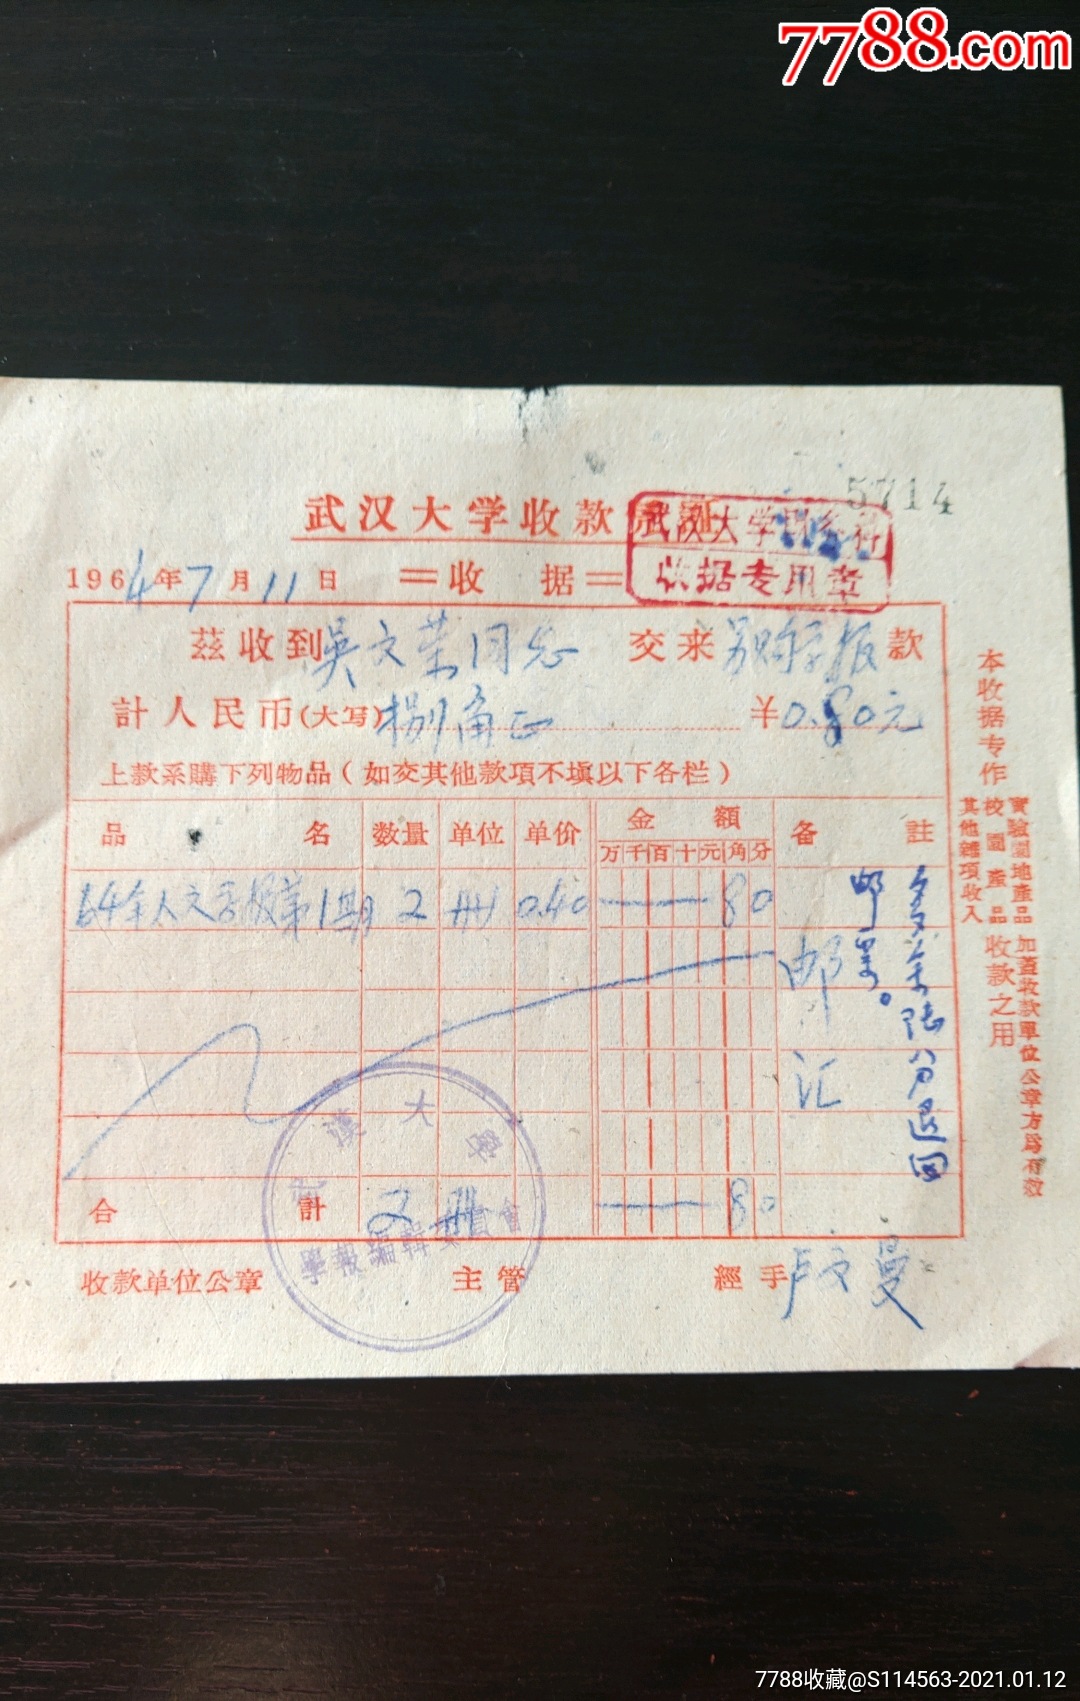 7788.com
5714
武汉大学收款
武汉大学财务科
收据专用章
1964年7月11日 =收 据=
茲收到吳文荣同志 交来另购学报款
計人民币(大写)捌角正 ¥0.80元
上款系購下列物品(如交其他款項不塡以下各栏)
品 名 数量 单位 单价 金 額 备 註
万 千 百 十 元 角 分
64年人文学报第1期 2 册 0.40 80
邮汇
多余陆分退回
邮票。
合 計 2 册 80
武漢大學
學報編輯委員會
收款单位公章 主管 經手 卢文曼
本收据专作
實驗園地產品
校園產品
其他雜項收入
收款之用
加蓋收款單位公章方為有效
7788收藏@S114563-2021.01.12